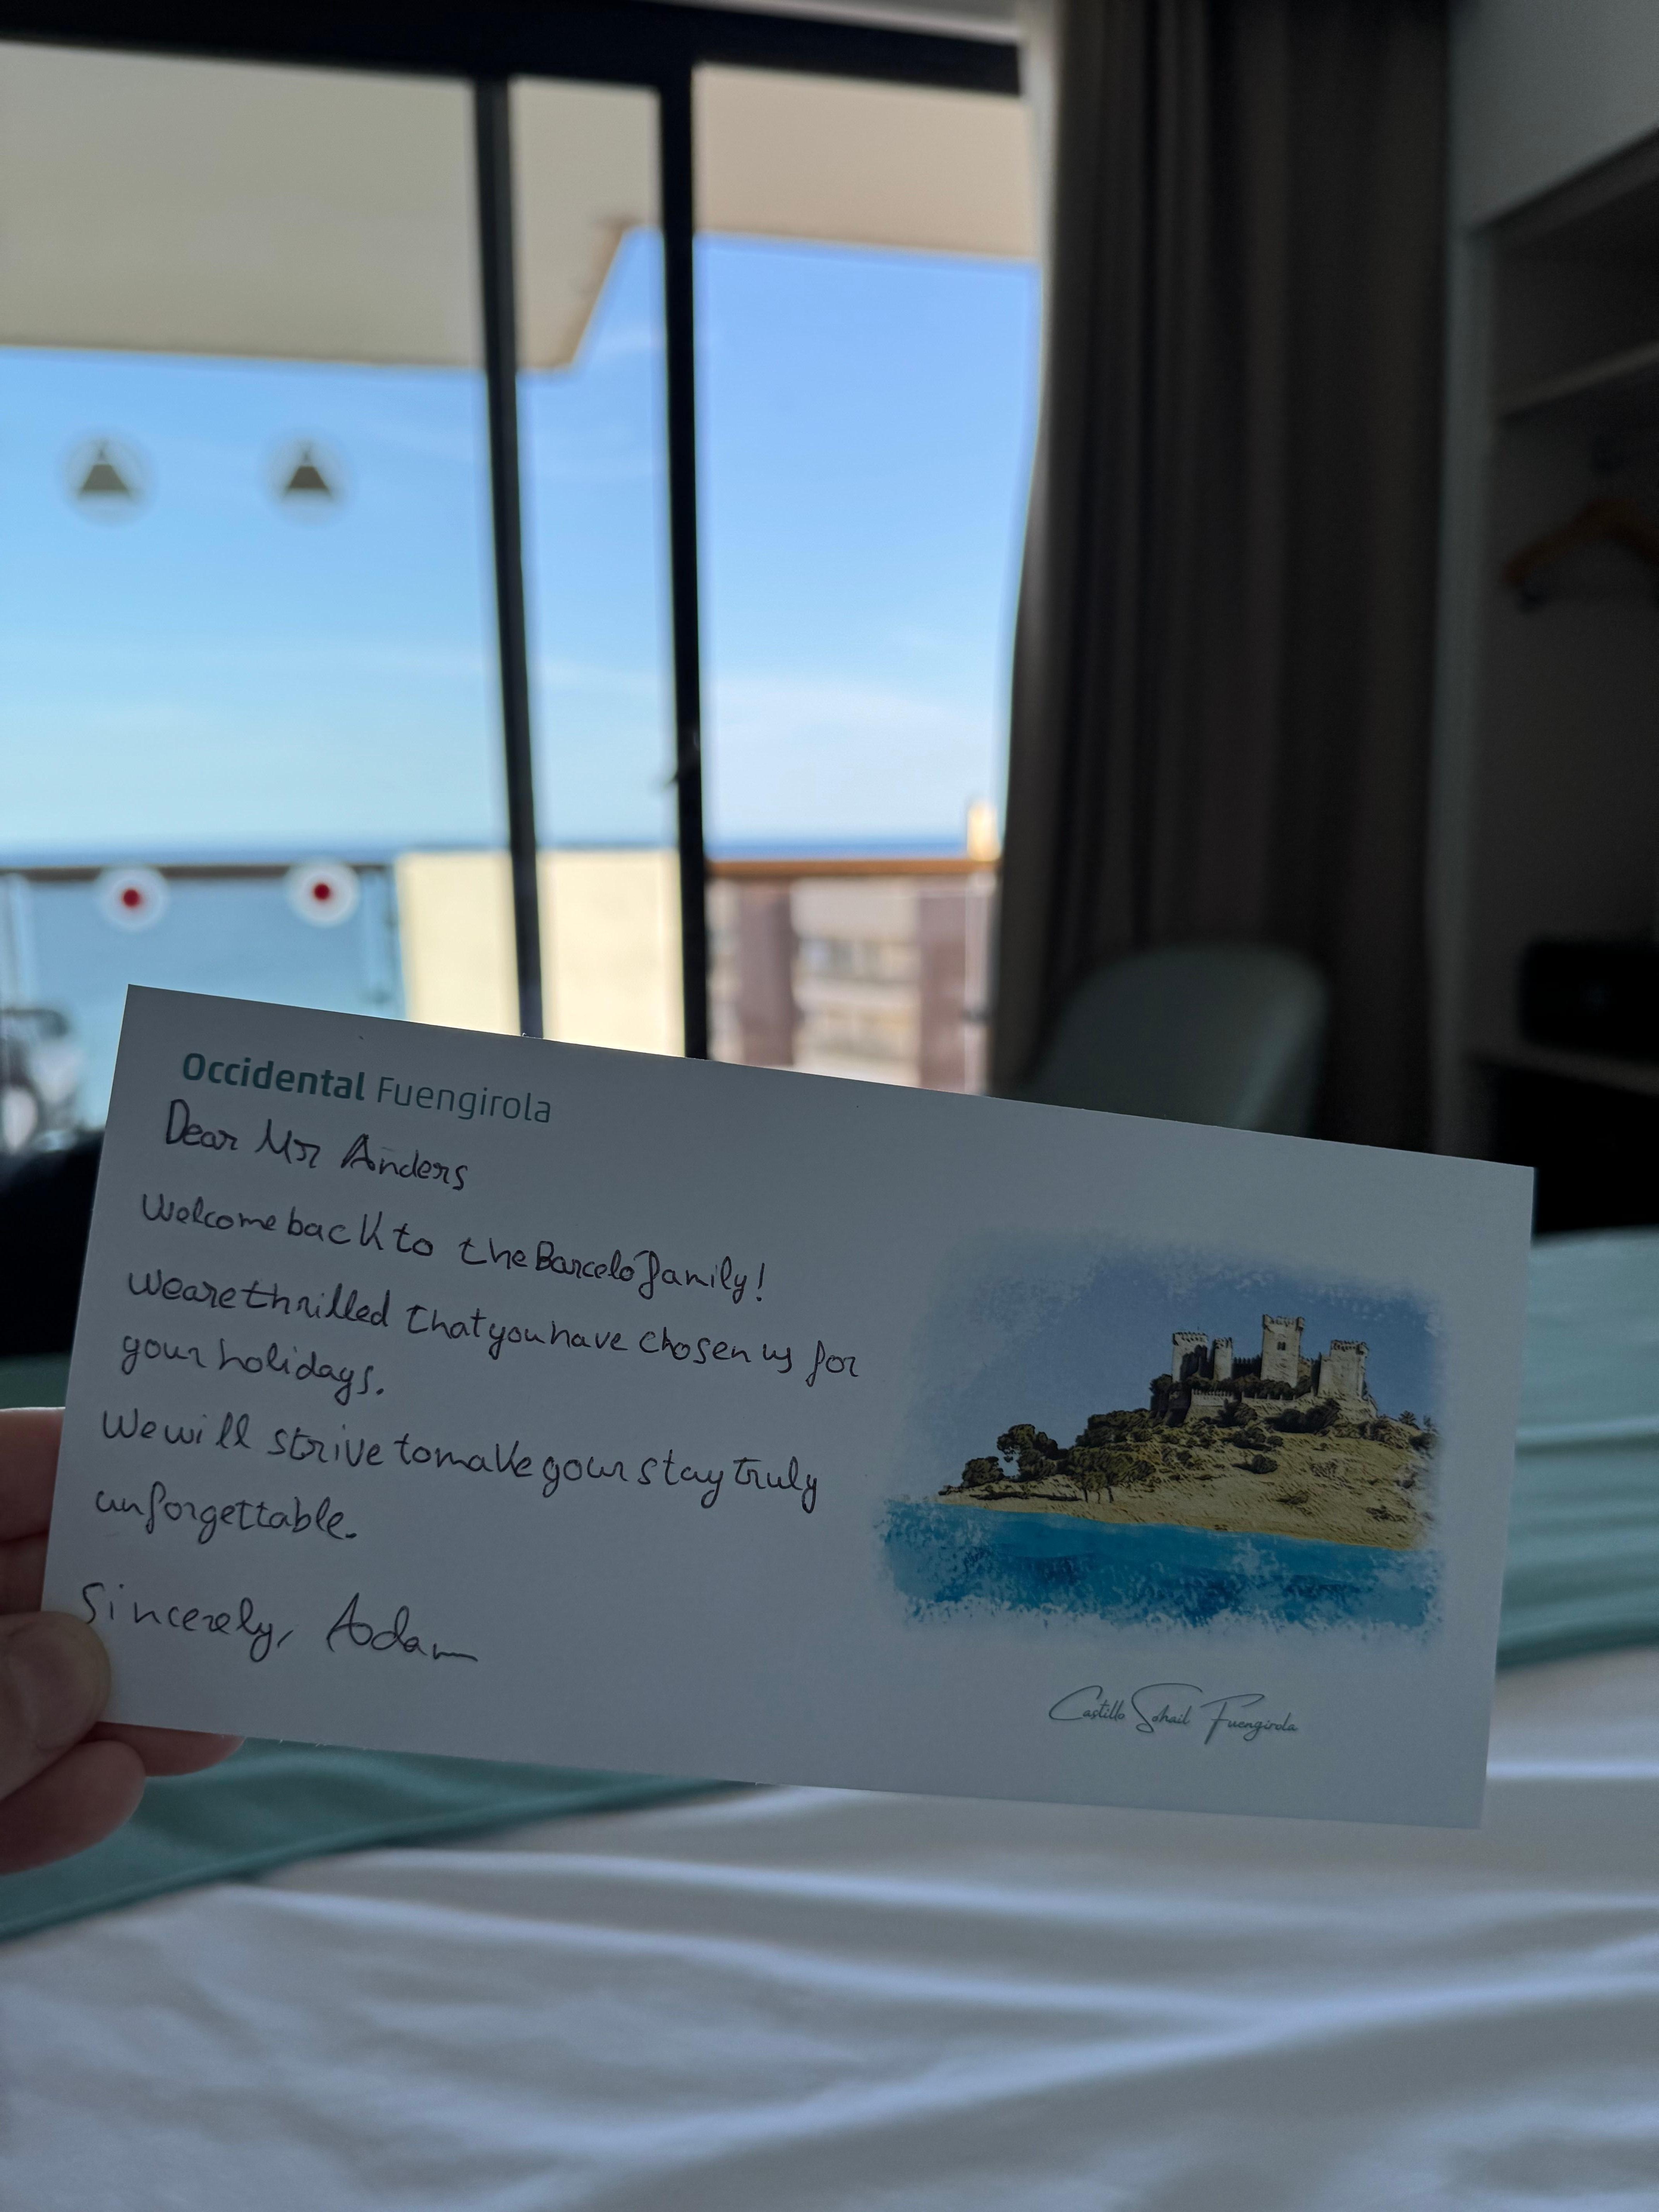 Occidental Fuengirola
Dear Mr Anders
Welcome back to the Barceló family!
We are thrilled that you have chosen us for
your holidays.
We will strive to make your stay truly
unforgettable.
Sincerely, Adam
Castillo Sohail Fuengirola